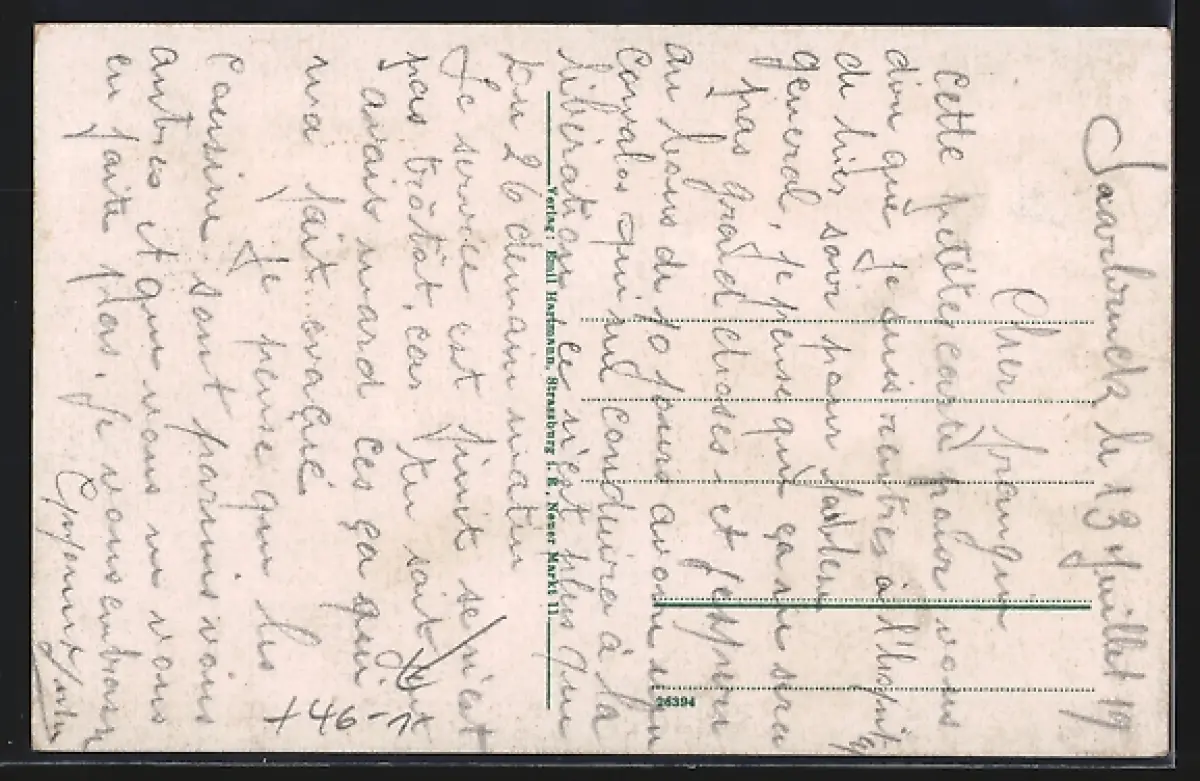 Saarbruck le 13 Juillet 19
Cher frangin
Cette petites carte pour vous
dire que je suis rentrés à l'hopit
de hier soir pour
general, je pense que ça ne sera
pas grand choses et j'esper
au bous de 10 jours avoir un
Convalos qui me conduira à la
libération ce n'est plus que
Du 26 demain matin
Le service est finit se n'est
pas trôtôt, car tu sait
avais mard ces ça qui
ma fait évaçué
Je pense que les
Cousine sont parmis vous
autres et que vous ne vous
en faite pas. Je vous embrasse
Verlag: Emil Hartmann, Strassburg i. E., Neuer Markt 11.
26394